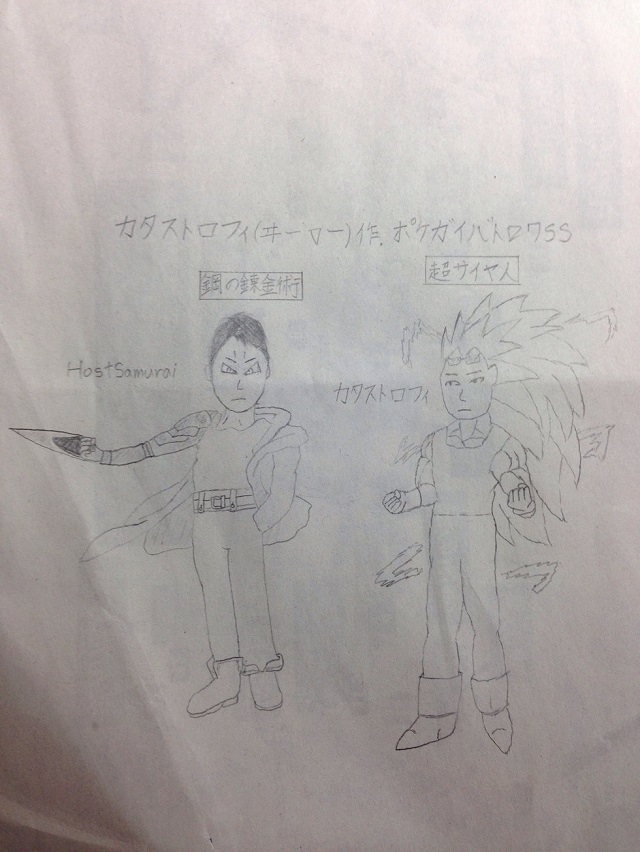 カタストロフィ(キーロー)作 ポケガイバトロワSS
超サイヤ人
鋼の錬金術師
HostSamurai
カタストロフィ